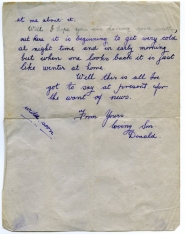 let me about it.
Well I hope you are having
out here it is beginning to get very cold
at night time and in early morning
but when one looks back it is just
like winter at home
Well this is all I've
got to say at present for
the want of news.
From Yours
loving Son
Donald
write soon